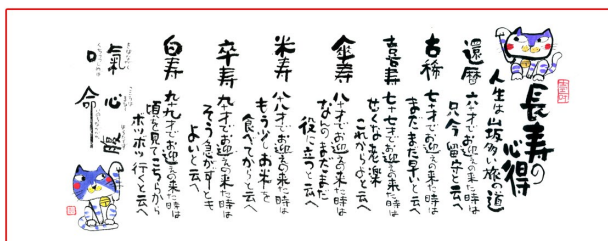 長寿の心得
人生は山坂多い旅の道
還暦
六十才でお迎えの来た時は
只今留守と云へ
古稀
七十才でお迎えの来た時は
まだまだ早いと云へ
喜寿
七十七才でお迎えの来た時は
せくな老楽
これからよと云へ
傘寿
八十才でお迎えの来た時は
なんのまだまだ
役に立つと云へ
米寿
八十八才でお迎えの来た時は
もう少しお米を
食べてからと云へ
卒寿
九十才でお迎えの来た時は
そう急がずとも
よいと云へ
白寿
九十九才でお迎えの来た時は
頃を見てこちらから
ボツボツ行くと云へ
氣心腹
口命